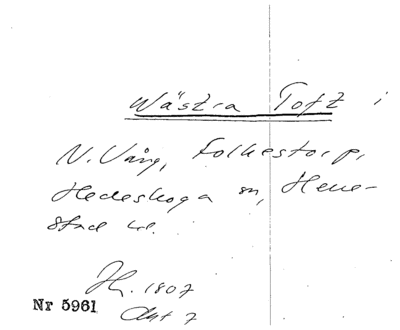 Wästra Toft i
N. Vång, Folkestorp,
Hedeskoga sn, Herre-
stad hd.
Jh. 1807
Akt 7
Nr 5961